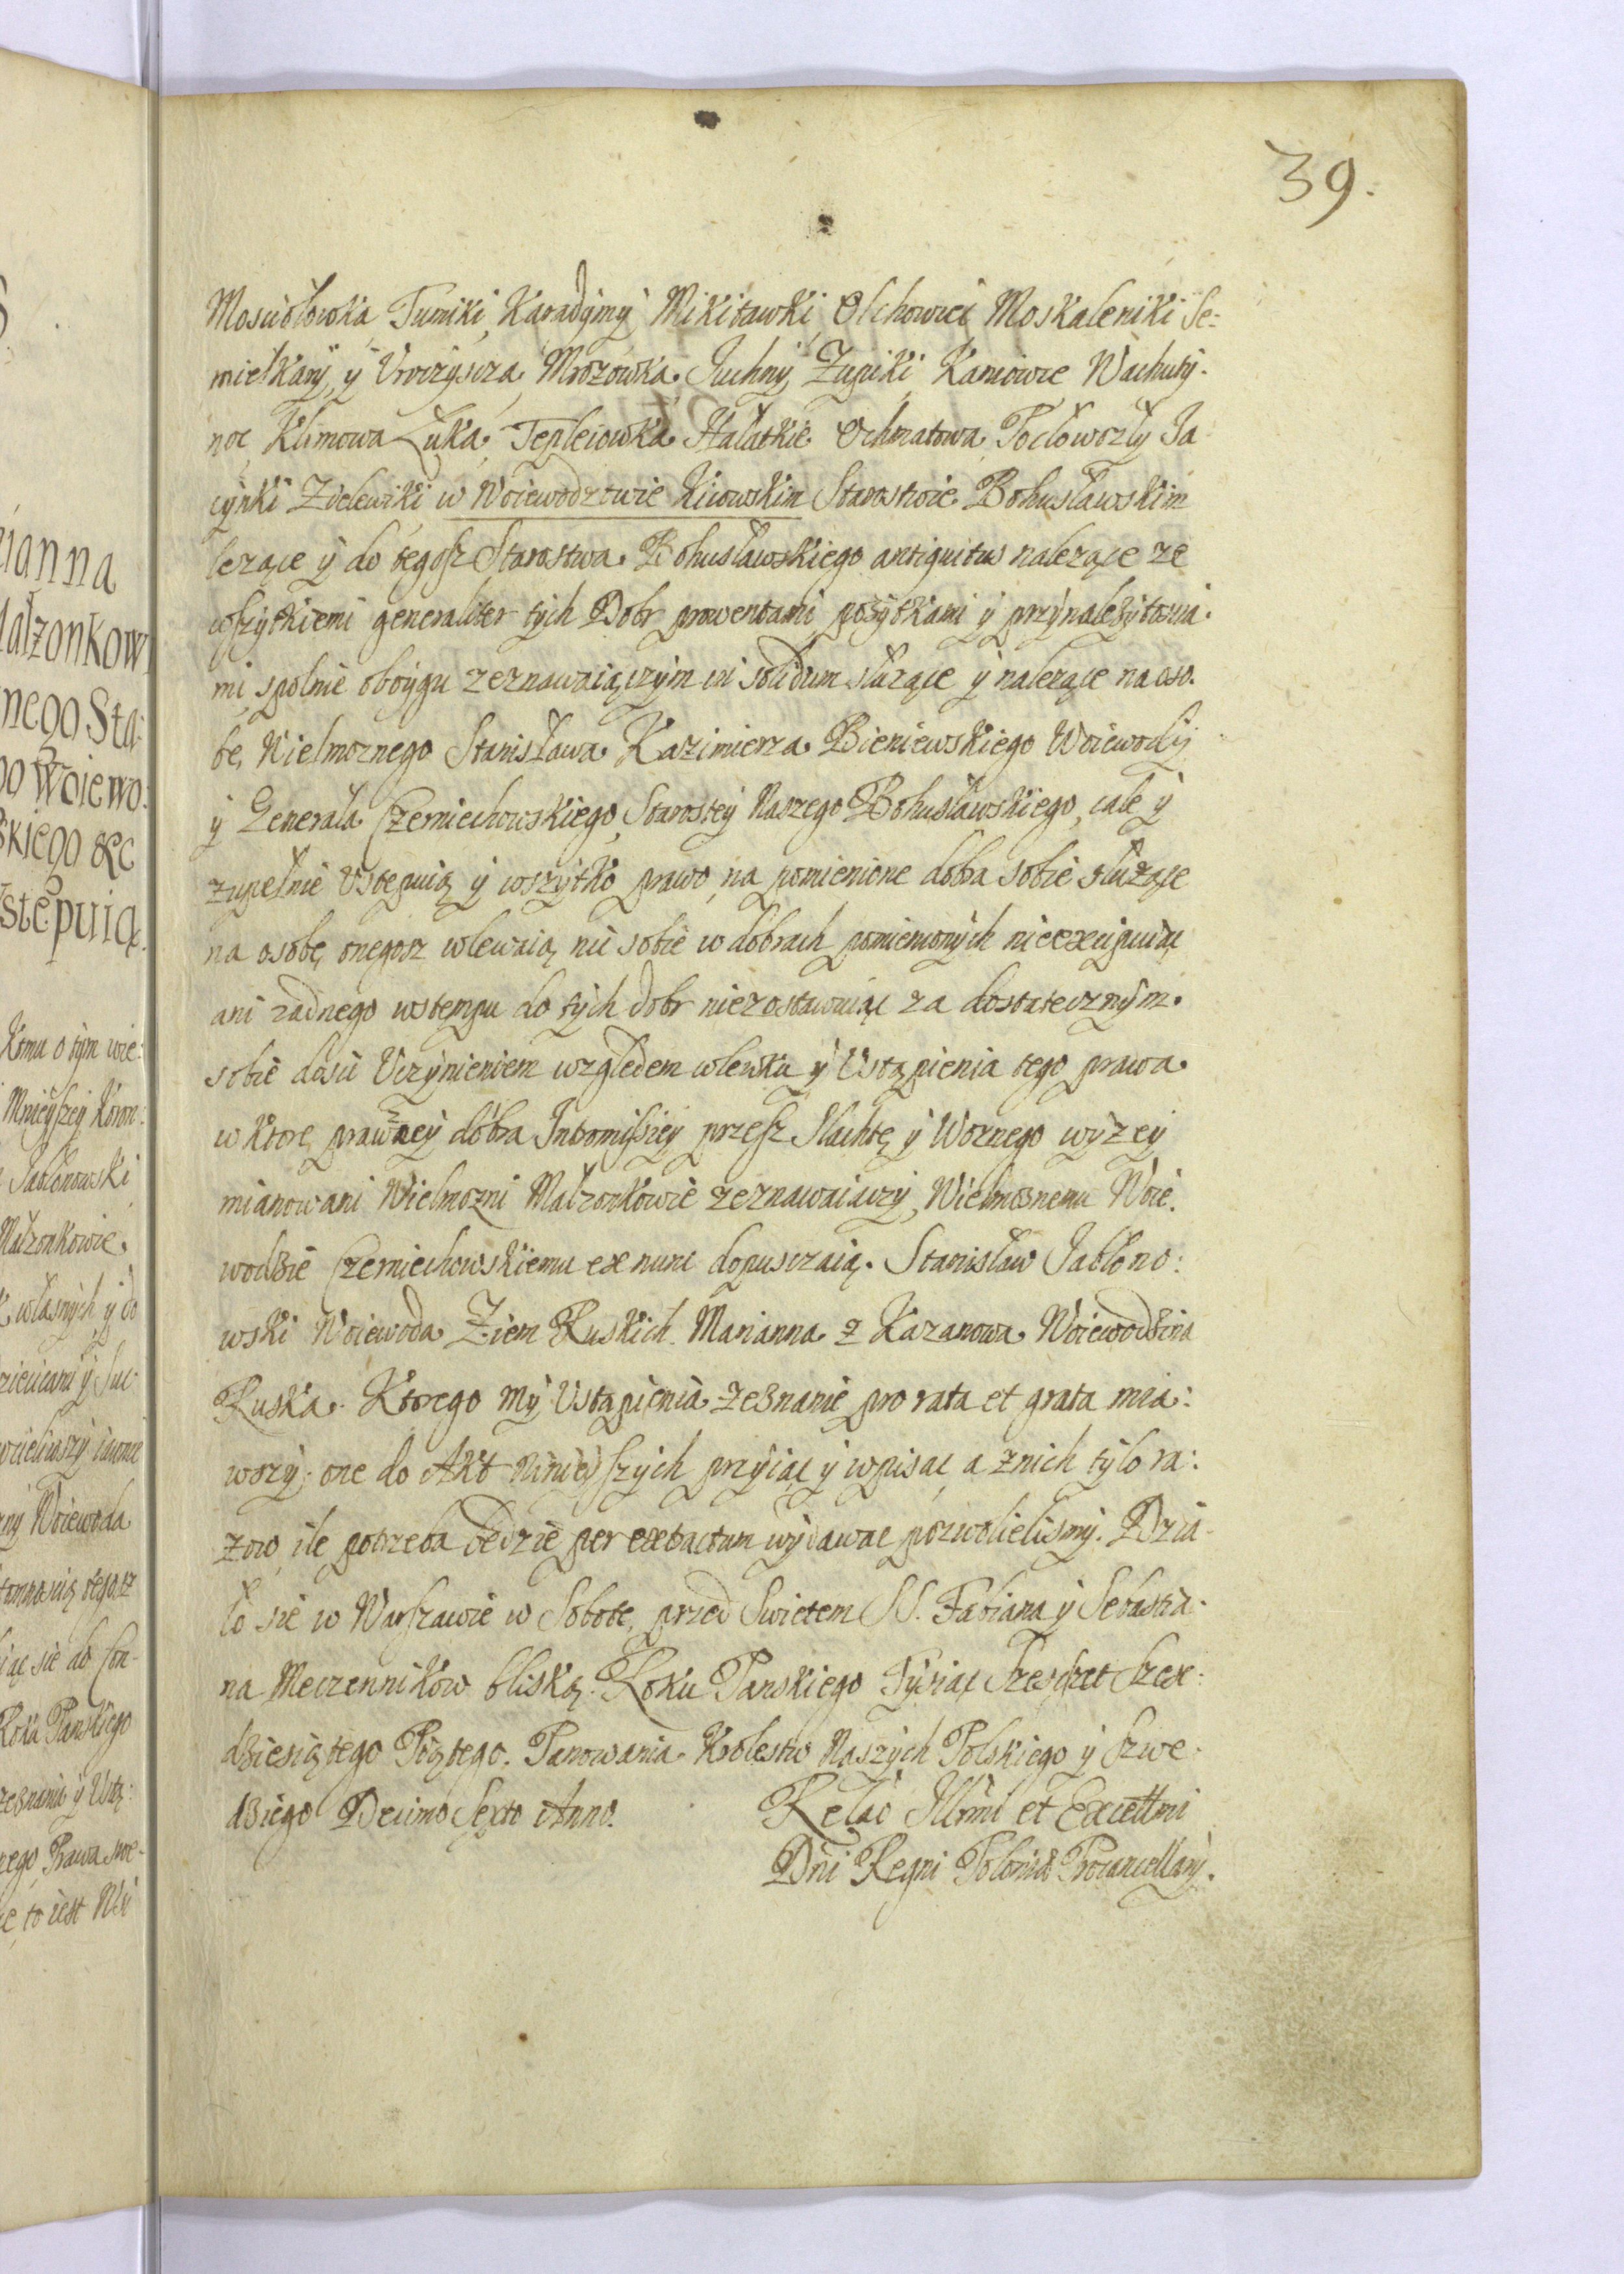 39.
Mosciołowka, Tumiki, Karadymy, Mikitawki, Olchowici Moskaleniki Se=
mielkany, y Uroczyscza, Mrozowka, Juchny, Zupiki, Kaniowce Wachuty-
noc Klimowa Łuka, Tepleiowka, Hałatkie Ochmatowa, Pocłowozły Ja
cynki Zielewiki w Woiewodztwie Kiiowskim Starostwie Bohusławskim
lezące y do tegosz Starostwa Bohusławskiego antiquitus nalezące ze
wszytkiemi generaliter tych Dobr prowentami, pożytkami y przynalezytoscia-
mi, spolnie oboygu zeznawaiączym in solidum słuzące y nalezące na oso-
be, Wielmoznego Stanisława Kazimierza Bieniewskiego Woiewody
y Generała Czerniechowskiego, Starosty Naszego Bohusławskiego, cale y
zupełnie Ustępuią y wszytko prawo, na pomienione dobra sobie służące
na osobę onegosz wlewaią nic sobie w dobrach pomienionych nieexcypuiąc
ani żadnego wstempu do tych dobr niezostawuiąc za dostatecznym
sobie dosić Uczynieniem względem wlewku y Ustąpienia tego prawa
w ktore prawa y dobra Intromissiey przesz Slachtę y Woznego wyzey
mianowani Wielmozni Małzonkowie zeznawaiaczy, Wielmoznemu Woie-
wodzie Czerniechowskiemu ex nunc dopusczaią. Stanisław Jabłono:
wski Woiewoda Ziem Ruskich. Marianna z Kazanowa Woiewodzina
Ruska. Ktorego My Ustąpienia zeznanie pro rata et grata mia:
wszy, one do Akt ninieyszych przyiąc y wpisac, a znich tylo ra:
zow, ile potrzeba będzie per extractum wydawac pozwolielismy. Dzia-
ło sie w Warszawie w Sobotę, przed Swietem SS. Fabiana y Sebastia-
na Meczennikow bliską. Roku Panskiego Tysiąc Szesczet Szesc:
dziesiątego Piątego. Panowania Krolestw Naszych Polskiego y Szwe-
dzkiego Decimo Sexto Anno.
Relac Illrmi et Excellmi
Dni Regni Poloniæ Procancellarÿ.